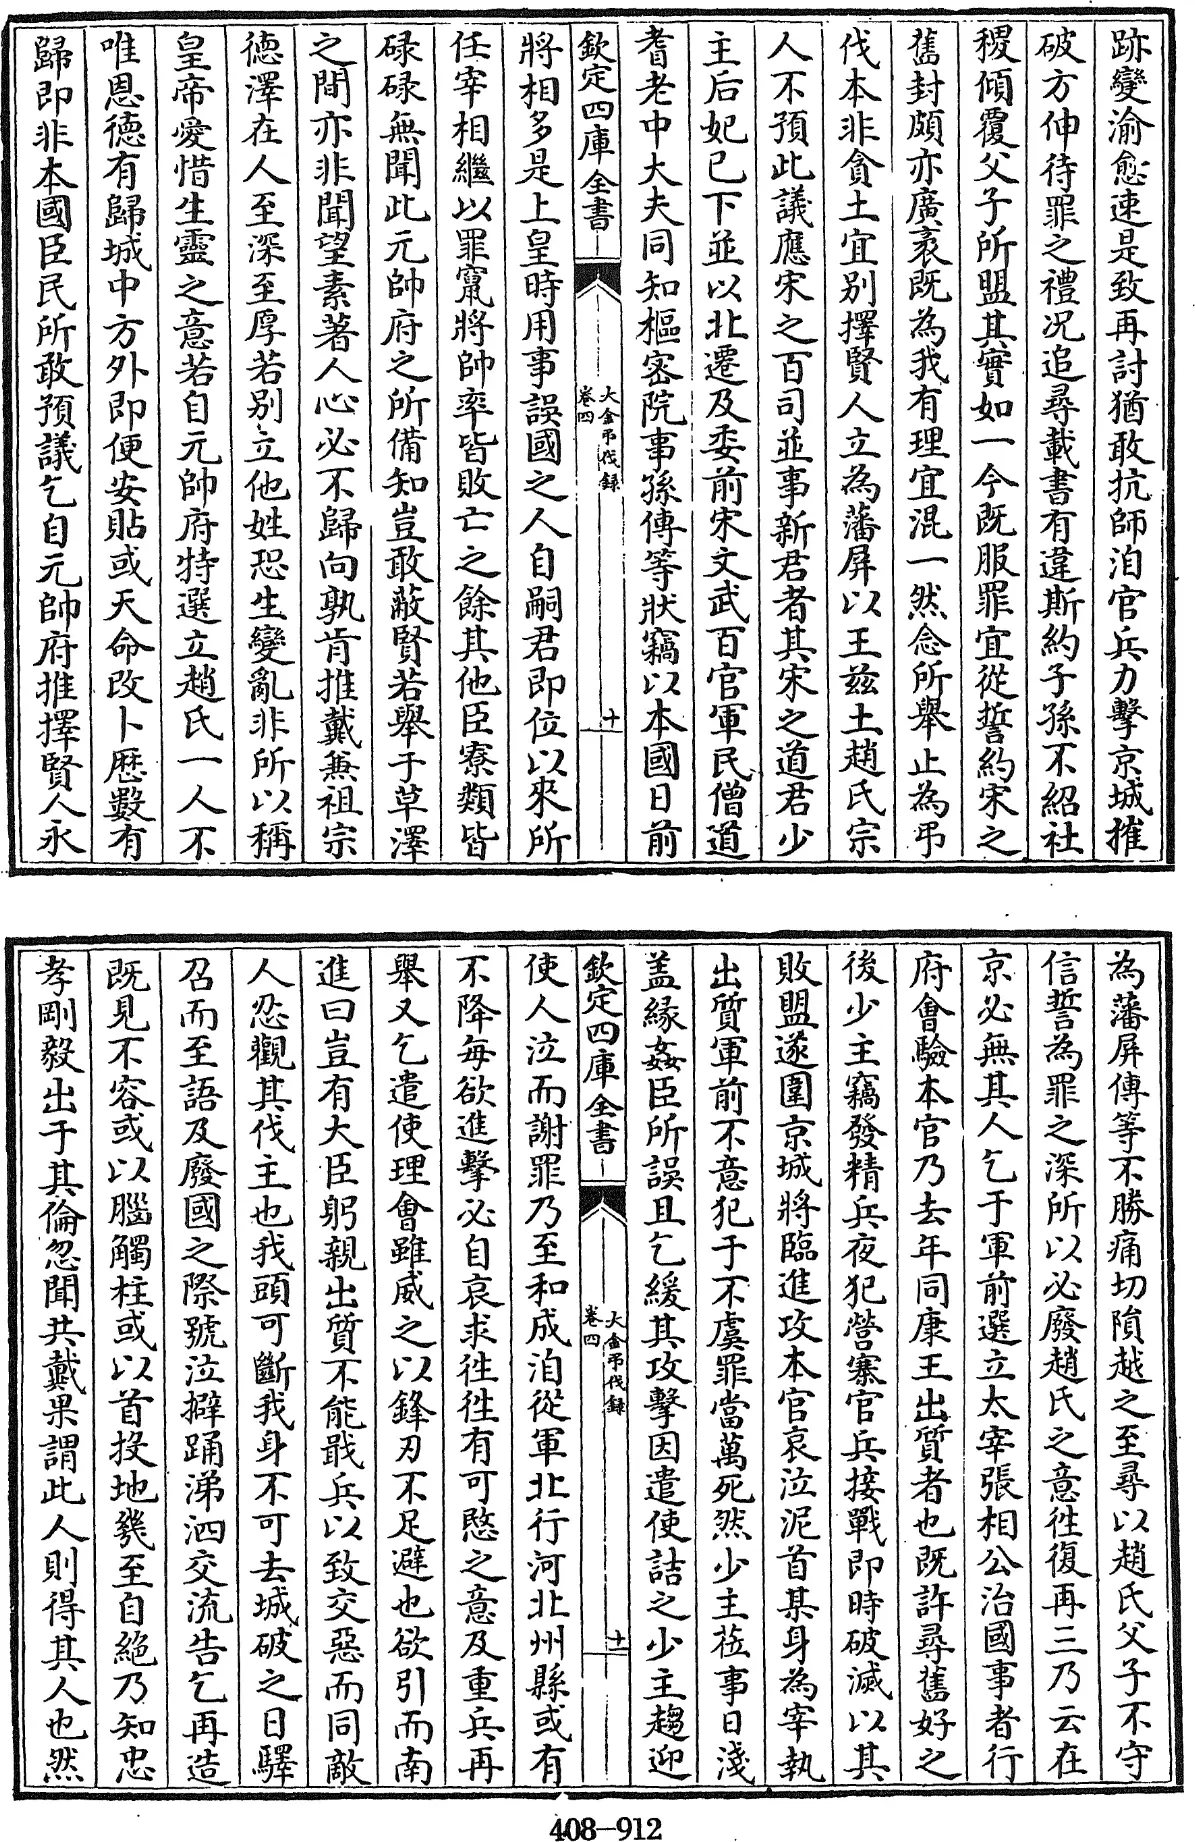 跡變渝愈速是致再討猶敢抗師洎官兵力擊京城摧
破方伸待罪之禮况追尋載書有違斯約子孫不紹社
稷傾覆父子所盟其實如一今既服罪宜從誓約宋之
舊封頗亦廣袤既為我有理宜混一然念所舉止為弔
伐本非貪土宜别擇賢人立為藩屏以王兹土趙氏宗
人不預此議應宋之百司並事新君者其宋之道君少
主后妃已下並以北遷及委前宋文武百官軍民僧道
耆老中大夫同知樞密院事孫傅等狀竊以本國日前
欽定四庫全書
大金弔伐録
卷四
十
將相多是上皇時用事誤國之人自嗣君即位以來所
任宰相繼以罪竄將帥率皆敗亡之餘其他臣寮類皆
碌碌無聞此元帥府之所備知豈敢蔽賢若舉于草澤
之間亦非聞望素著人心必不歸向孰肯推戴兼祖宗
德澤在人至深至厚若别立他姓恐生變亂非所以稱
皇帝愛惜生靈之意若自元帥府特選立趙氏一人不
唯恩德有歸城中方外即便安貼或天命改卜厯數有
歸即非本國臣民所敢預議乞自元帥府推擇賢人永
為藩屏傅等不勝痛切隕越之至尋以趙氏父子不守
信誓為罪之深所以必廢趙氏之意往復再三乃云在
京必無其人乞于軍前選立太宰張相公治國事者行
府會驗本官乃去年同康王出質者也既許尋舊好之
後少主竊發精兵夜犯營寨官兵接戰即時破滅以其
敗盟遂圍京城將臨進攻本官哀泣泥首某身為宰執
出質軍前不意犯于不虞罪當萬死然少主莅事日淺
盖緣姦臣所誤且乞緩其攻擊因遣使詰之少主趨迎
欽定四庫全書
大金弔伐録
卷四
十一
使人泣而謝罪乃至和成洎從軍北行河北州縣或有
不降每欲進擊必自哀求往往有可愍之意及重兵再
舉又乞遣使理會雖威之以鋒刃不足避也欲引而南
進曰豈有大臣躬親出質不能戢兵以致交惡而同敵
人忍觀其伐主也我頭可斷我身不可去城破之日驛
召而至語及廢國之際號泣擗踊涕泗交流告乞再造
既見不容或以腦觸柱或以首投地幾至自絶乃知忠
孝剛毅出于其倫忽聞共戴果謂此人則得其人也然
408-912